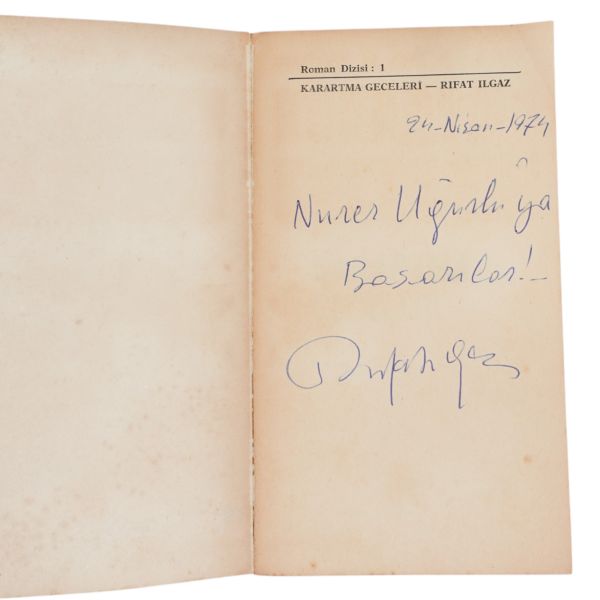 Roman Dizisi : 1
KARARTMA GECELERİ — RIFAT ILGAZ
24-Nisan-1974
Nurer Uğurlu'ya
Başarılar!
Rıfat Ilgaz